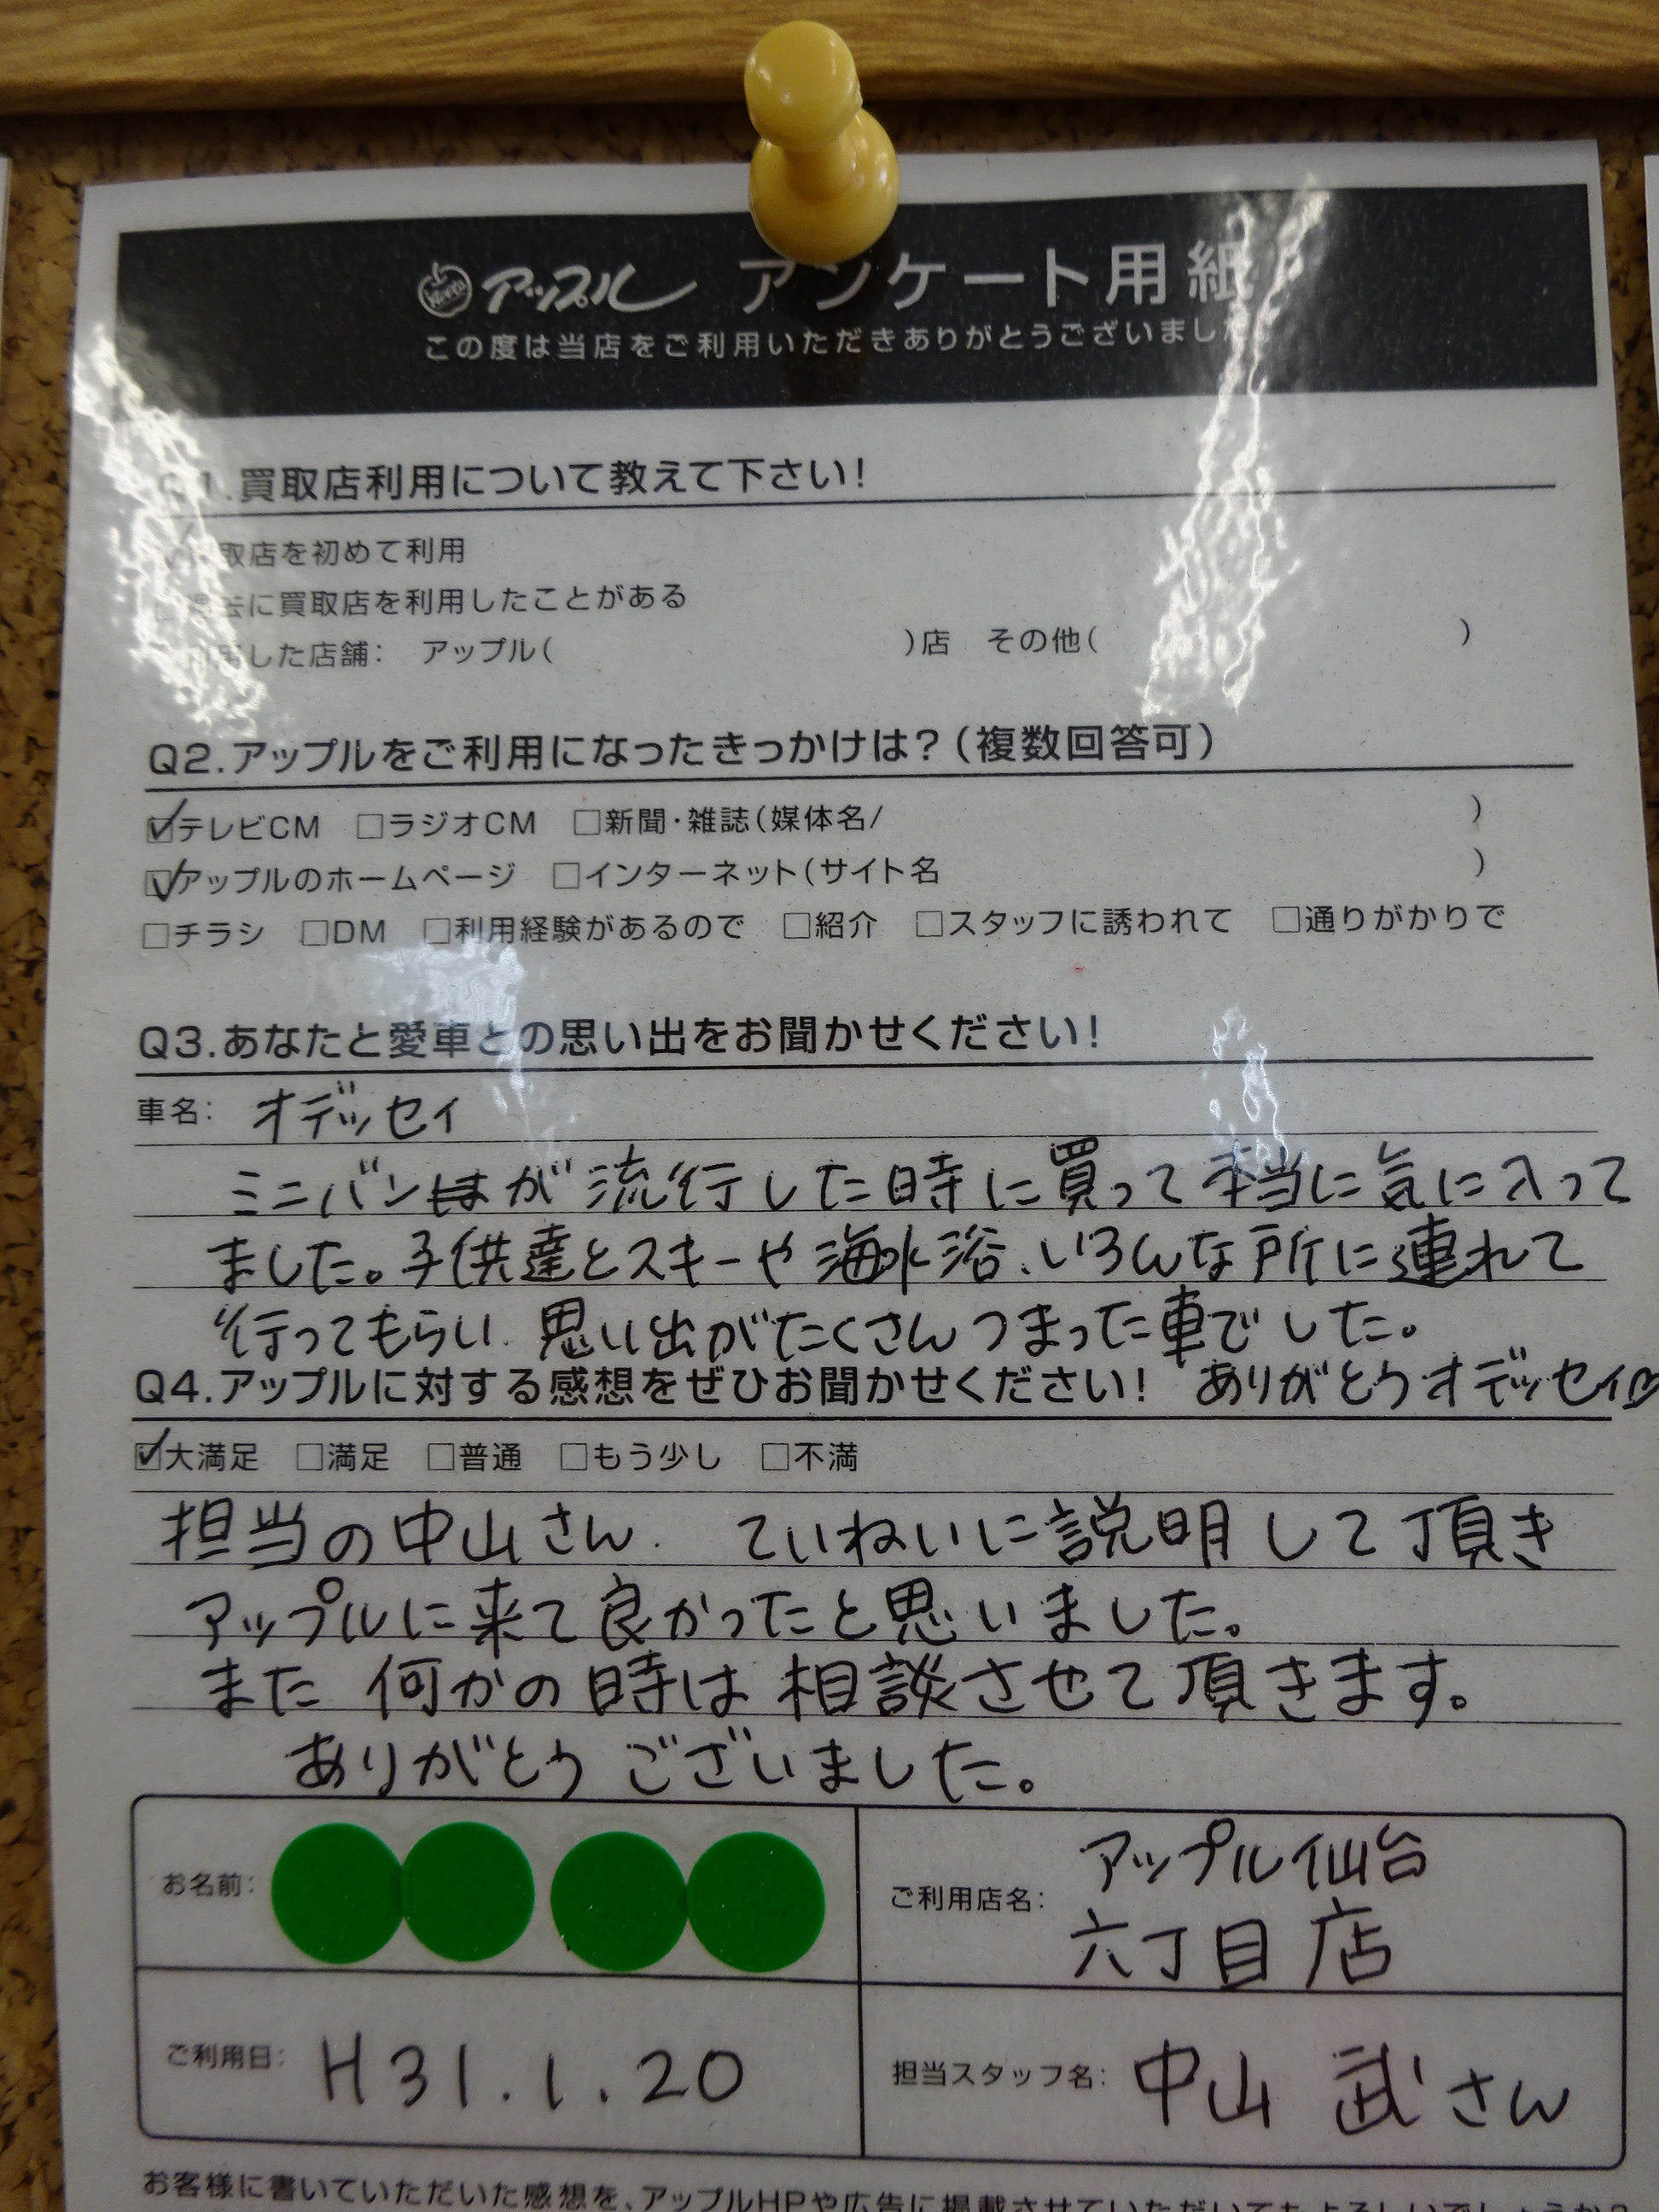 アップル アンケート用紙
この度は当店をご利用いただきありがとうございました
Q1.買取店利用について教えて下さい!
買取店を初めて利用
□過去に買取店を利用したことがある
利用した店舗: アップル( )店 その他( )
Q2.アップルをご利用になったきっかけは?(複数回答可)
☑テレビCM □ラジオCM □新聞・雑誌(媒体名/ )
☑アップルのホームページ □インターネット(サイト名 )
□チラシ □DM □利用経験があるので □紹介 □スタッフに誘われて □通りがかりで
Q3.あなたと愛車との思い出をお聞かせください!
車名: オデッセイ
ミニバンが流行した時に買って本当に気に入って
ました。子供達とスキーや海水浴、いろんな所に連れて
行ってもらい、思い出がたくさんつまった車でした。
Q4.アップルに対する感想をぜひお聞かせください! ありがとうオデッセイ♡
☑大満足 □満足 □普通 □もう少し □不満
担当の中山さん、ていねいに説明して頂き
アップルに来て良かったと思いました。
また何かの時は相談させて頂きます。
ありがとうございました。
お名前:
ご利用店名: アップル仙台
六丁目店
ご利用日: H31.1.20
担当スタッフ名: 中山 武さん
お客様に書いていただいた感想を、アップルHPや広告に掲載させていただいてもよろしいでしょうか?